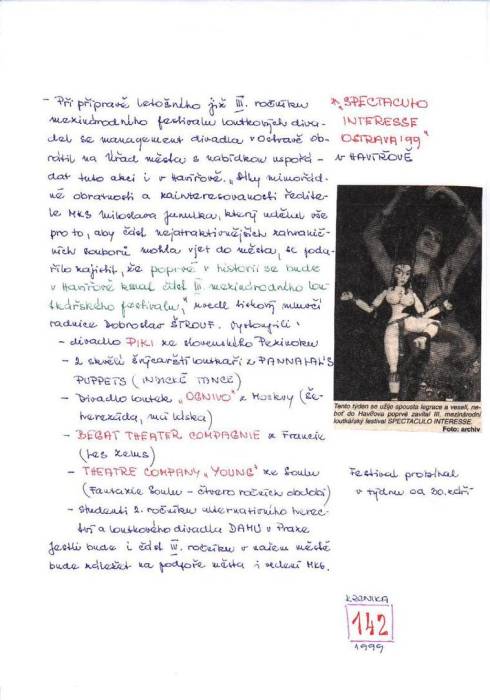 - Při přípravě letošního již III. ročníku
mezinárodního festivalu loutkových diva-
del se management divadla v Ostravě ob-
rátil na Úřad města s nabídkou uspořá-
dat tuto akci i v Havířově. „Díky mimořád-
né obratnosti a zainteresovanosti ředite-
le MKS Miloslava který udělal vše
pro to, aby část nejatraktivnějších zahranič-
ních souborů mohla vjet do města, se poda-
řilo zajistit, že poprvé v historii se bude
v Havířově konat část III. mezinárodního lout-
kářského festivalu,“ uvedl tiskový mluvčí
radnice Dobroslav ŠTROUF. Vystoupili:
- divadlo PIKI ze slovenského Pezinoku
- 2 skvělí švýcarští loutkáři z PANNALAL'S
PUPPETS (INDICKÉ TANCE)
- Divadlo loutek "OGNIVO" z Moskvy (Še-
herezáda, má láska)
- BEGAT THEATER COMPAGNIE z Francie
(Les zems)
- THEATRE COMPANY "YOUNG" ze Soulu
(Fantazie Soulu - čtvero ročních období)
- studenti 2. ročníku alternativního herec-
tví a loutkového divadla DAMU v Praze
Jestli bude i část IV. ročníku v našem městě
bude záležet na podpoře města i vedení MKS.
"SPECTACULO
INTERESSE
OSTRAVA '99"
v HAVÍŘOVĚ
Tento týden se užije spousta legrace a veselí, ne-
boť do Havířova poprvé zavítal III. mezinárodní
loutkářský festival SPECTACULO INTERESSE.
Foto: archiv
Festival probíhal
v týdnu od 20. září
KRONIKA
142
1999